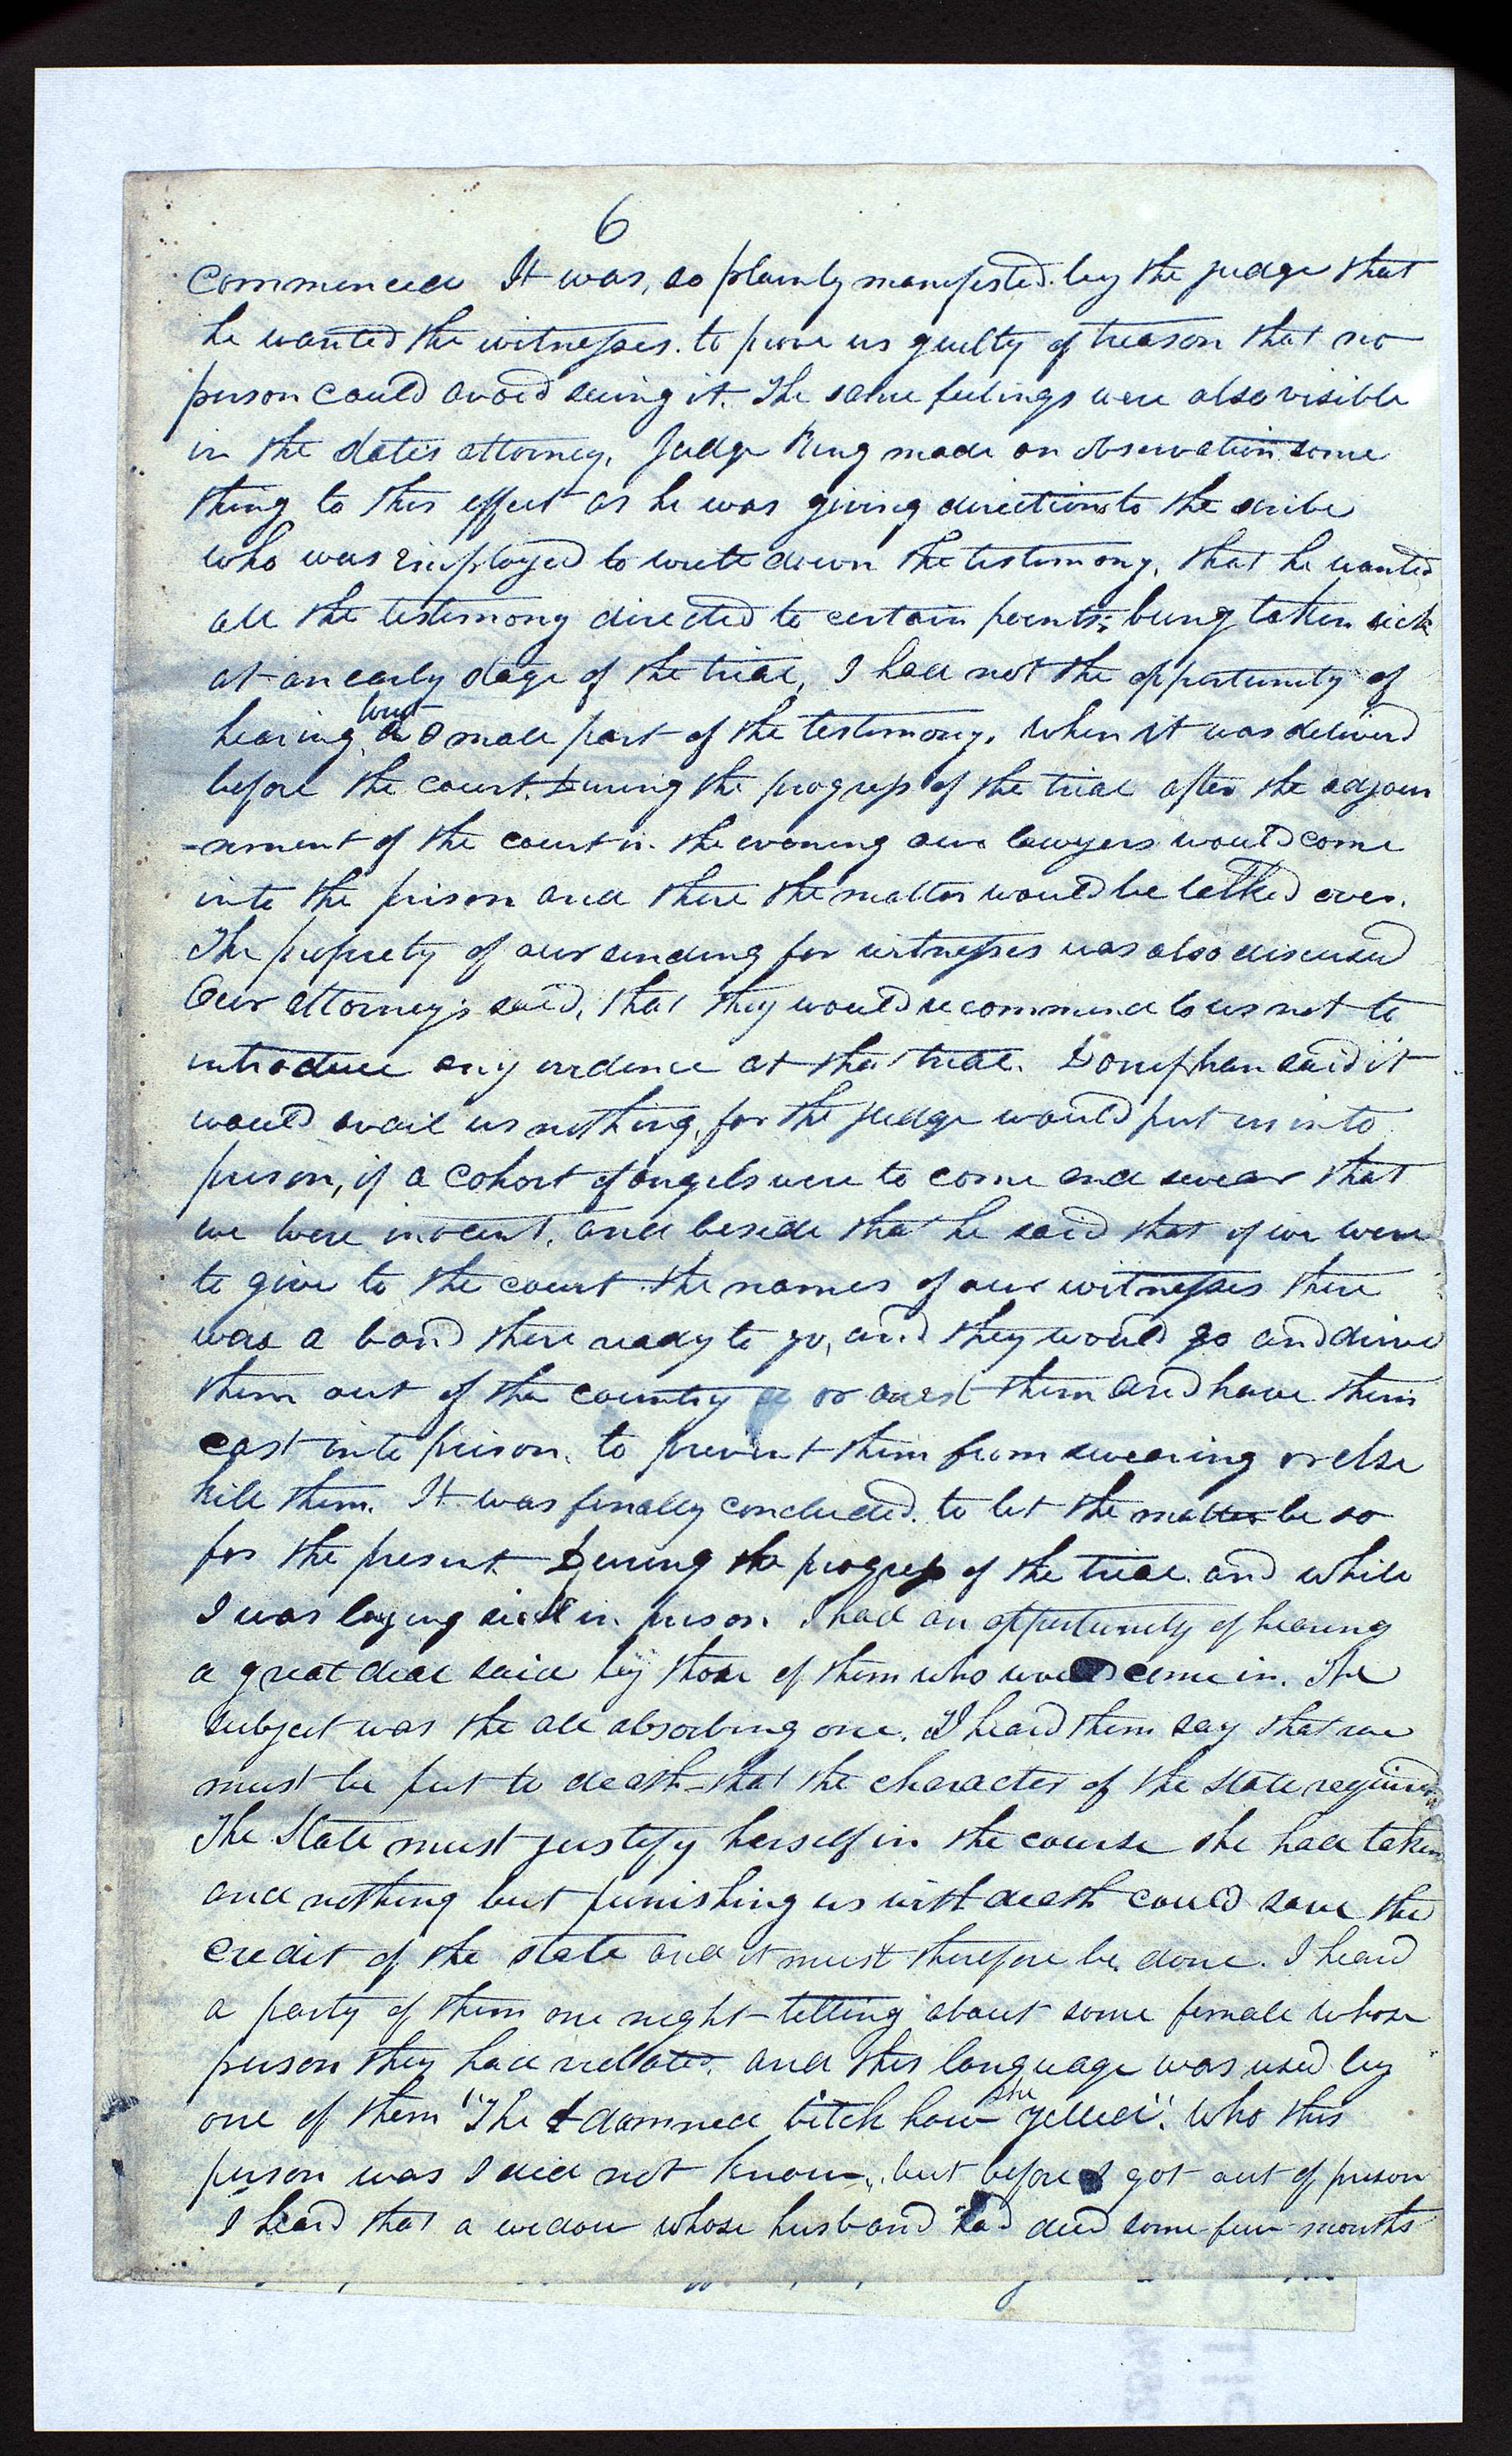 6
commenced It was, so plainly manifested by the judge that
he wanted the witnesses. to prove us guilty of treason that no
person could avoid seeing it. The same feelings were also visible
in the states attorney. Judge King made an observation some
thing to this effect as he was giving directions to the scribe
who was employed to write down the testimony, that he wanted
all the testimony directed to certain points; being taken sick
at an early stage of the trial, I had not the opportunity of
but
hearing a small part of the testimony, when it was deliverd
before the court. During the progress of the trial after the adjourn
-ment of the court in the evening our lawyers would come
into the prison and there the matter would be talked over.
The propriety of our sending for witnesses was also discused
Our attorneys said, that they would recommend to us not to
introduce any evidence at that trial. Doniphan said it
would avail us nothing, for the judge would put us into
prison, if a cohort of angels were to come and swear that
we were inocent, and beside that he said that if we were
to give to the court the names of our witnesses there
was a band there ready to go, and they would go and drive
them out of the country or arrest them and have them
cast into prison. to prevent them from swearing or else
kill them. It was finally concluded. to let the matter be so
for the present During the progress of the trial and while
I was laying sick in prison I had an opportunity of hearing
a great deal said by those of them who would come in. The
subject was the all absorbing one. I heard them say that we
must be put to death - that the character of the state required it
The State must justify herself in the course she had taken
and nothing but punishing us with death could save the
credit of the state and it must therefore be done. I heard
a party of them one night telling about some female whose
person they had violated. and this language was used by
she
one of them "The damned bitch how yelled". Who this
person was I did not know, but before I got out of prison
I heard that a widow whose husband had died some few months